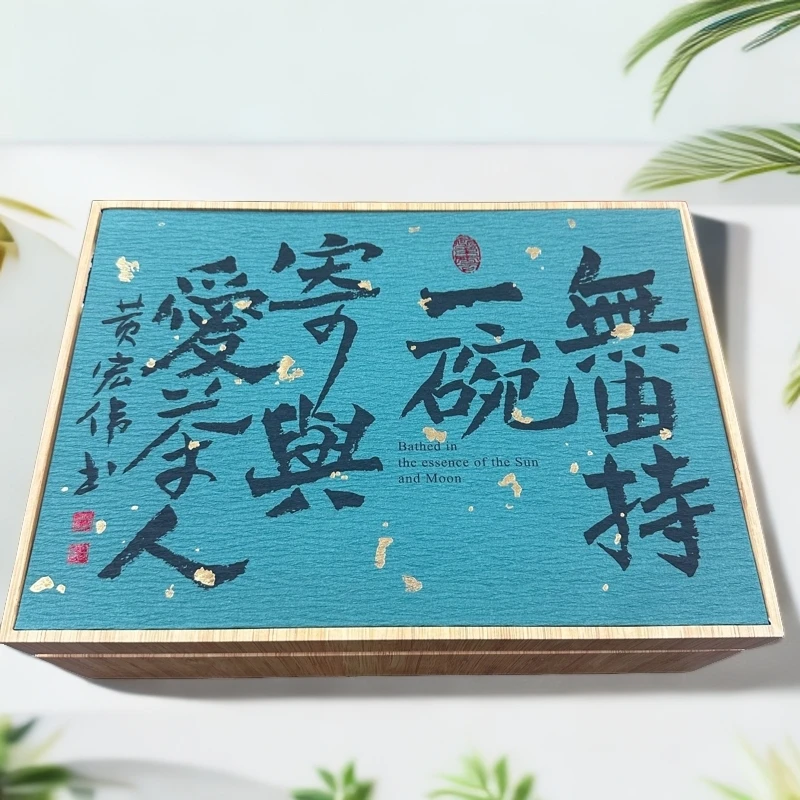 無由持
一碗
寄與
愛茶人
黄宏伟书
Bathed in
the essence of the Sun
and Moon